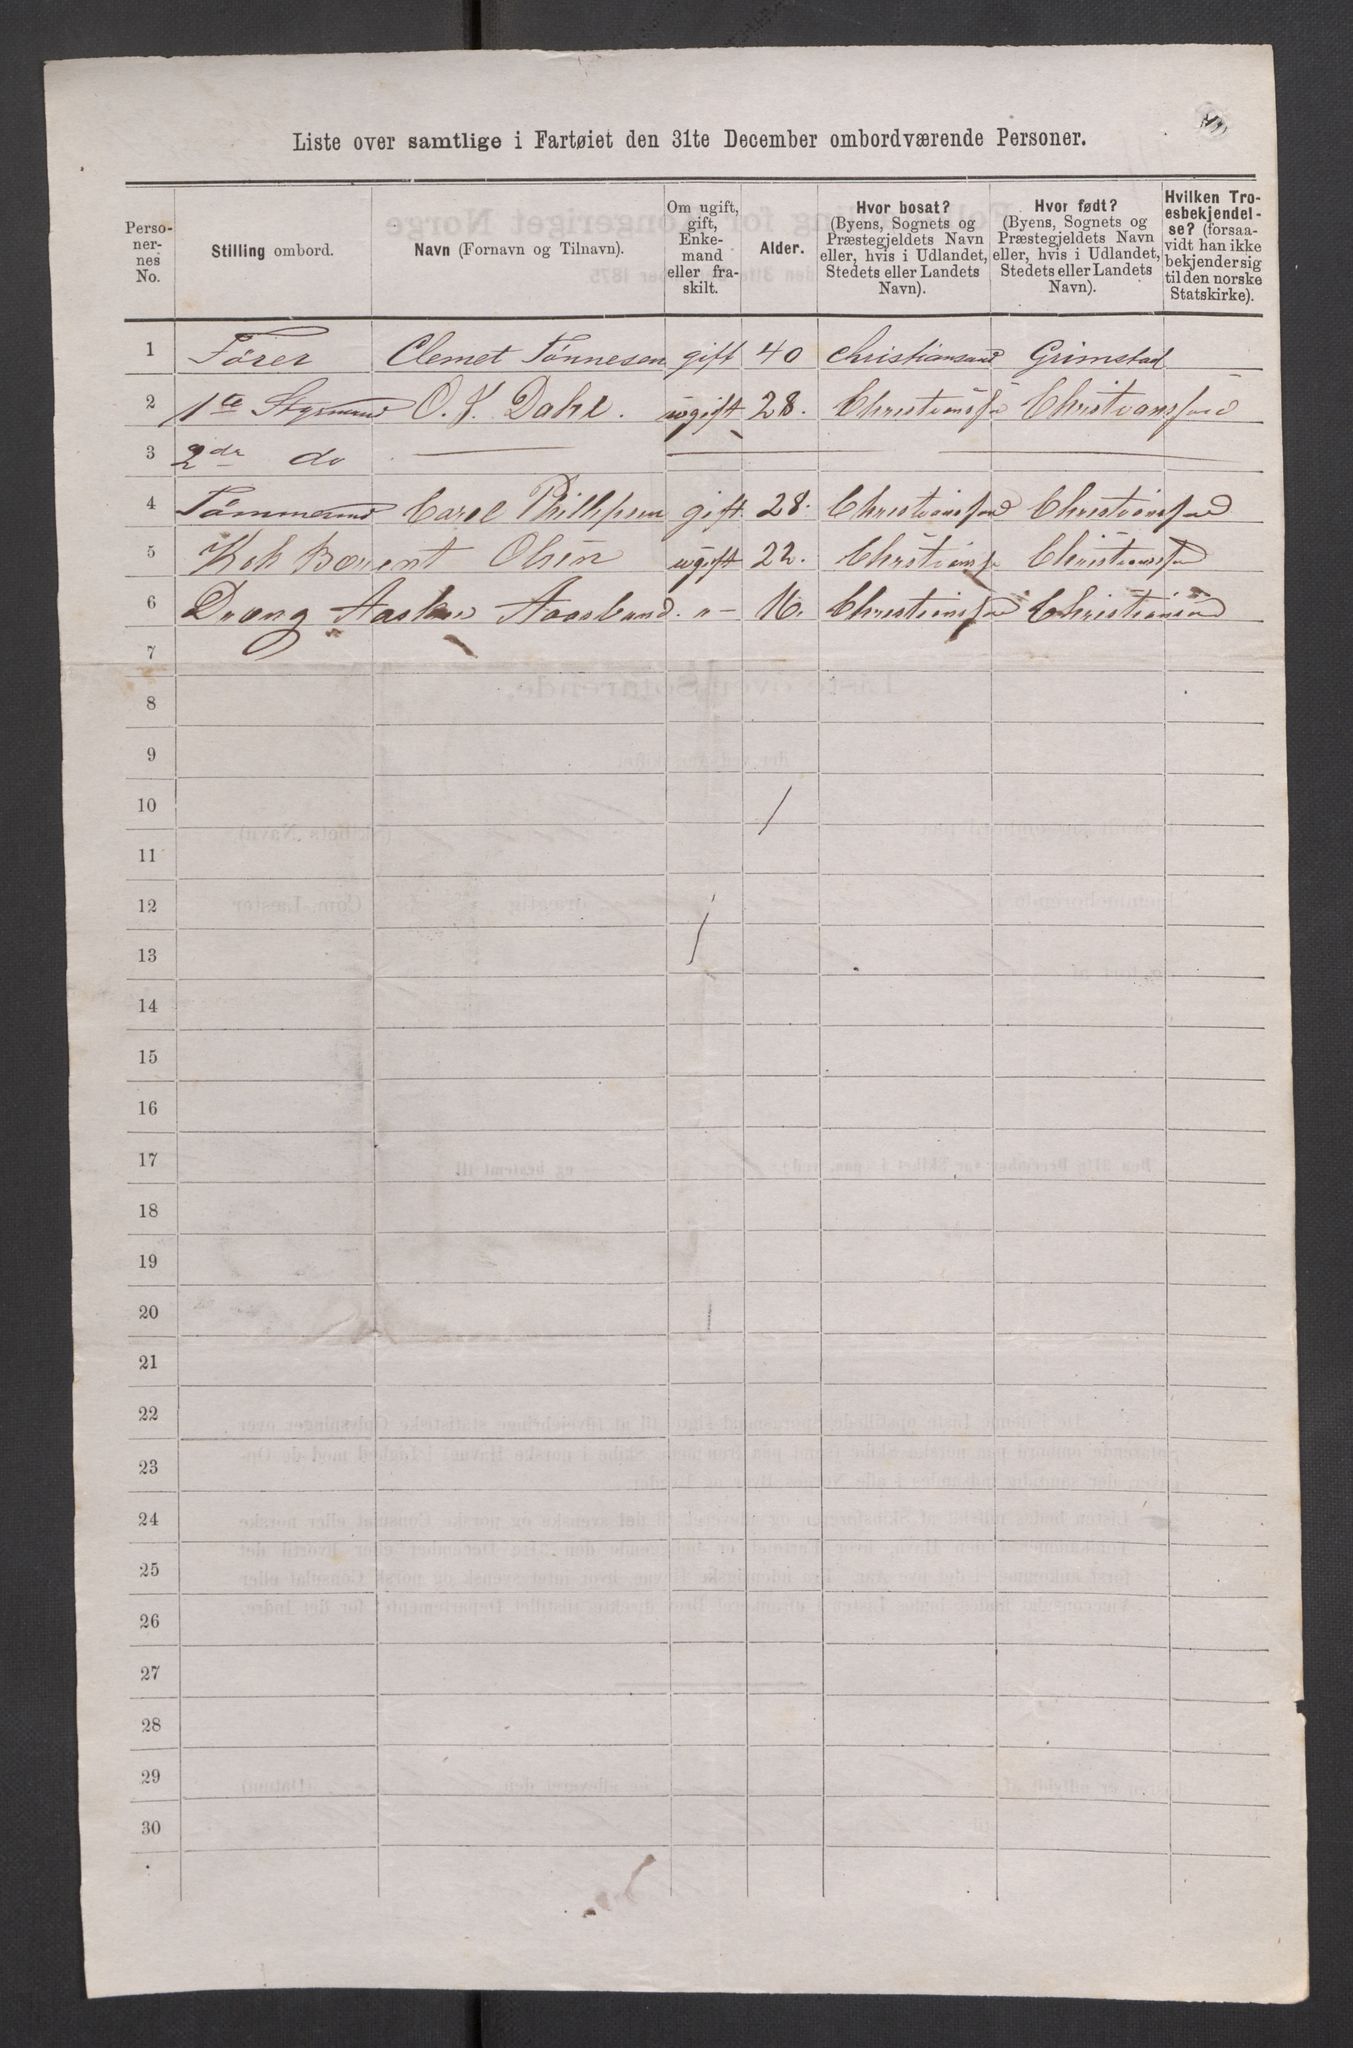 Liste over samtlige i Fartøiet den 31te December ombordværende Personer.
Perso-
ner-
nes
No.
Stilling ombord.
Navn (Fornavn og Tilnavn).
Om ugift,
gift,
Enke-
mand
eller fra-
skilt.
Alder.
Hvor bosat?
(Byens, Sognets og
Præstegjeldets Navn
eller, hvis i Udlandet,
Stedets eller Landets
Navn).
Hvor født?
(Byens, Sognets og
Præstegjeldets Navn
eller, hvis i Udlandet,
Stedets eller Landets
Navn).
Hvilken Tro-
esbekjendel-
se? (forsaa-
vidt han ikke
bekjender sig
til den norske
Statskirke).
1 Fører Clemet Tønnesen gift 40 Christiansand Grimstad
2 1te Styrmand O. Dahl. ugift 28. Christiansa Christiansand
3 2den do
4 Tømmermand Carel Phillipsen gift 28. Christiansand Christiansand
5 Kok Berent Olsen ugift 22. Christiansa Christiansa
6 Dreng 16. Christiansa Christiansand
7
8
9
10
11
12
13
14
15
16
17
18
19
20
21
22
23
24
25
26
27
28
29
30